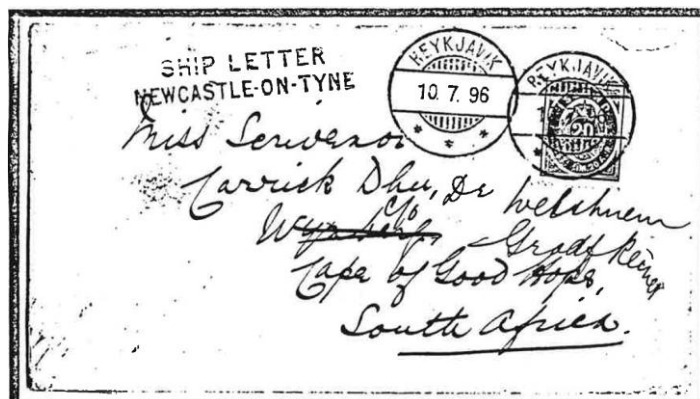 SHIP LETTER
NEWCASTLE-ON-TYNE
REYKJAVIK
10.7.96
REYKJAVIK
20
Miss Scrivenor
Carrick Dhu, De
c/o
Graaf Reinet
Cape of Good Hope,
South Africa.